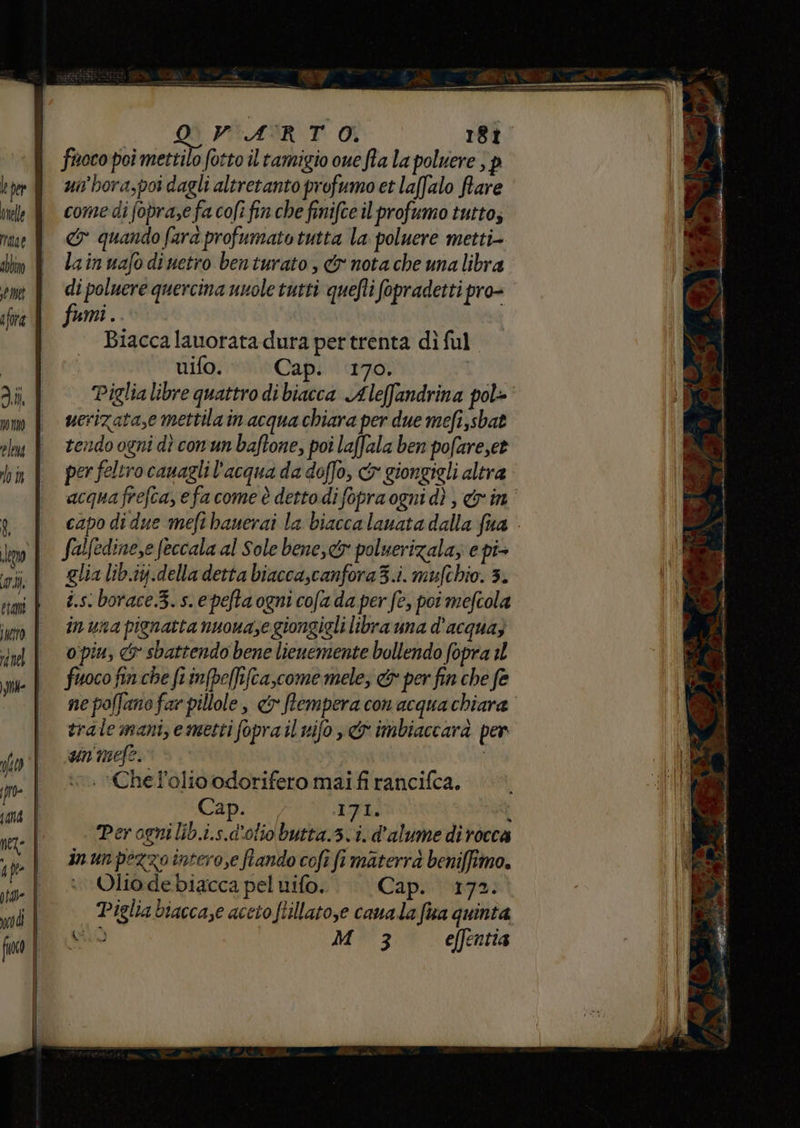 QVARTO. 181
fuoco poi mettilo ſotto il tamigio oue ſta la poluere, p
un'hora, poi dagli altretanto profumo et laſſalo ſtare
come di ſopra, e fa coſi fin che finiſce il profumo tutto,
& quando ſarà profumato tutta la poluere metti-
la in uaſo di uetro ben turato, & nota che una libra
di poluere quercina uuole tutti queſti ſopradetti pro-
fumi.
Biacca lauorata dura per trenta dì ſul
uiſo. Cap. 170.
Piglia libre quattro di biacca Aleſſandrina pol-
uerizata, e mettila in acqua chiara per due meſi, sbat
tendo ogni dì con un baſtone, poi laſſala ben poſare, et
per feltro cauagli l'acqua da doſſo, & giongigli altra
acqua freſca, e fa come è detto di ſopra ogni dì, & in
capo di due meſi hauerai la biacca lauata dalla ſua
falſedine, e ſeccala al Sole bene, & poluerizala, e pi-
glia lib.iij. della detta biacca, canfora ℥.i. muſchio. ℈.
i.s. borace.℥. s. e peſta ogni coſa da per ſe, poi meſcola
in una pignatta nuoua, e giongigli libra una d'acqua,
o piu, & sbattendo bene lieuemente bollendo ſopra il
fuoco fin che ſi inſpeſſiſca, come mele, & per fin che ſe
ne poſſano far pillole, & ſtempera con acqua chiara
tra le mani, e metti ſopra il uiſo, & imbiaccarà per
un meſe.
Che l'olio odorifero mai ſi ranciſca.
Cap. 171.
Per ogni lib.i.s. d'olio butta.℥. i. d'alume di rocca
in un pezzo intero, e ſtando coſi ſi materrà beniſſimo.
Olio de biacca pel uiſo. Cap. 172.
Piglia biacca, e aceto ſtillato, e caua la ſua quinta
M 3 eſſentia